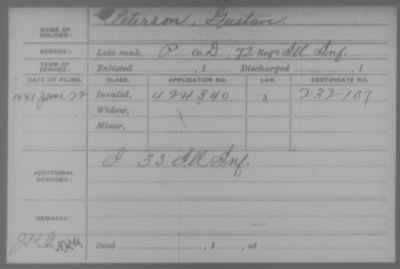 NAME OF SOLDIER: Peterson, Gustave
SERVICE: Late rank, P Co. D, 72 Reg't Ill Inf.
TERM OF SERVICE: Enlisted , 1 Discharged , 1
DATE OF FILING. CLASS. APPLICATION NO. LAW. CERTIFICATE NO.
1881 June 22 Invalid, 424340 232107
Widow,
Minor,
ADDITIONAL SERVICES: I 33 Ill Inf.
REMARKS:
Died , 1 , at